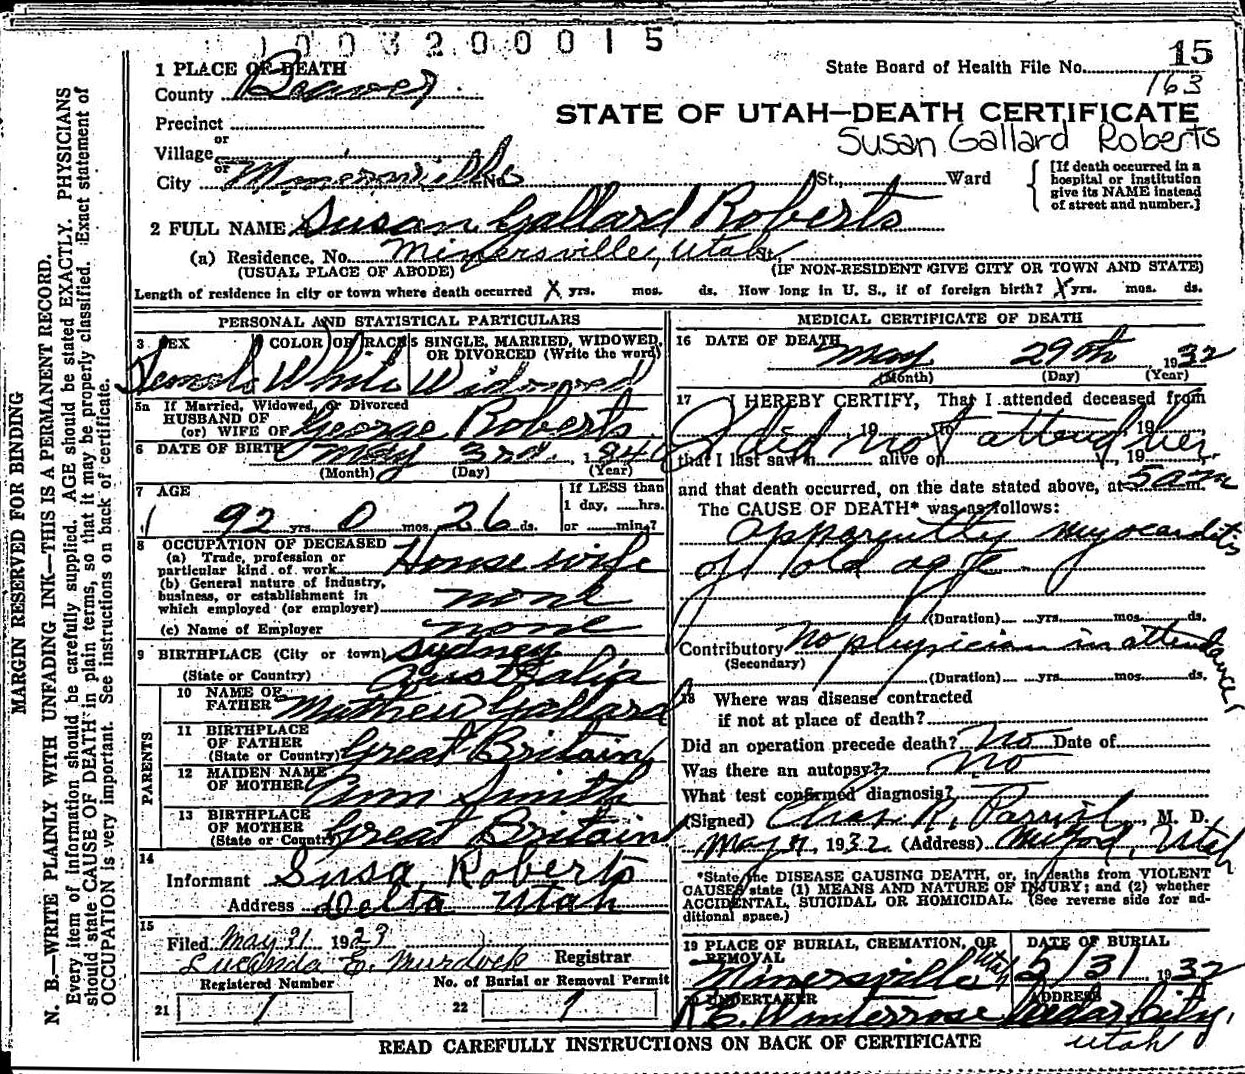 1003200015
15
1 PLACE OF DEATH
State Board of Health File No.
163
County Beaver
STATE OF UTAH—DEATH CERTIFICATE
Precinct
Susan Gallard Roberts
or
Village
or
City Minersville No. St., Ward
[If death occurred in a
hospital or institution
give its NAME instead
of street and number.]
2 FULL NAME Susan Gallard Roberts
(a) Residence. No. Minersville, Utah St.
(USUAL PLACE OF ABODE) (IF NON-RESIDENT GIVE CITY OR TOWN AND STATE)
Length of residence in city or town where death occurred X yrs. mos. ds. How long in U. S., if of foreign birth? X yrs. mos. ds.
PERSONAL AND STATISTICAL PARTICULARS
3 SEX COLOR OR RACE 5 SINGLE, MARRIED, WIDOWED,
OR DIVORCED (Write the word)
Female White Widowed
5a If Married, Widowed, or Divorced
HUSBAND OF
(or) WIFE OF George Roberts
6 DATE OF BIRTH May 3rd. 1840
(Month) (Day) (Year)
7 AGE If LESS than
1 day, hrs.
92 yrs. 0 mos. 26 ds. or min.?
8 OCCUPATION OF DECEASED
(a) Trade, profession or
particular kind of work House wife
(b) General nature of industry,
business, or establishment in
which employed (or employer) none
(c) Name of Employer none
9 BIRTHPLACE (City or town) Sydney
(State or Country) Australia
PARENTS
10 NAME OF
FATHER Mathew Gallard
11 BIRTHPLACE
OF FATHER
(State or Country) Great Britain
12 MAIDEN NAME
OF MOTHER Ann Smith
13 BIRTHPLACE
OF MOTHER
(State or Country) Great Britain
14
Informant Susa Roberts
Address Delta Utah
15
Filed May 31 1923
Lucinda E. Murdock Registrar
Registered Number No. of Burial or Removal Permit
21 1 22 1
MEDICAL CERTIFICATE OF DEATH
16 DATE OF DEATH
May 29th 1932
(Month) (Day) (Year)
17 I HEREBY CERTIFY, That I attended deceased from
I did not attend her
19 to 19
that I last saw h alive on 19
and that death occurred, on the date stated above, at 5 a m.
The CAUSE OF DEATH* was as follows:
apparently myocarditis
of old age
(Duration) yrs. mos. ds.
Contributory No physician in attendance
(Secondary)
(Duration) yrs. mos. ds.
18 Where was disease contracted
if not at place of death?
Did an operation precede death? No Date of
Was there an autopsy? No
What test confirmed diagnosis?
(Signed) Chas N. M. D.
May 1932 (Address) Milford, Utah
*State the DISEASE CAUSING DEATH, or, in deaths from VIOLENT
CAUSES state (1) MEANS AND NATURE OF INJURY; and (2) whether
ACCIDENTAL, SUICIDAL OR HOMICIDAL. (See reverse side for ad-
ditional space.)
19 PLACE OF BURIAL, CREMATION, OR
REMOVAL
Minersville Utah
DATE OF BURIAL
5/31 1932
20 UNDERTAKER
R E. Winterrose
ADDRESS
Cedar City,
Utah
READ CAREFULLY INSTRUCTIONS ON BACK OF CERTIFICATE
MARGIN RESERVED FOR BINDING
N. B.—WRITE PLAINLY WITH UNFADING INK—THIS IS A PERMANENT RECORD.
Every item of information should be carefully supplied. AGE should be stated EXACTLY. PHYSICIANS
should state CAUSE OF DEATH in plain terms, so that it may be properly classified. Exact statement of
OCCUPATION is very important. See instructions on back of certificate.